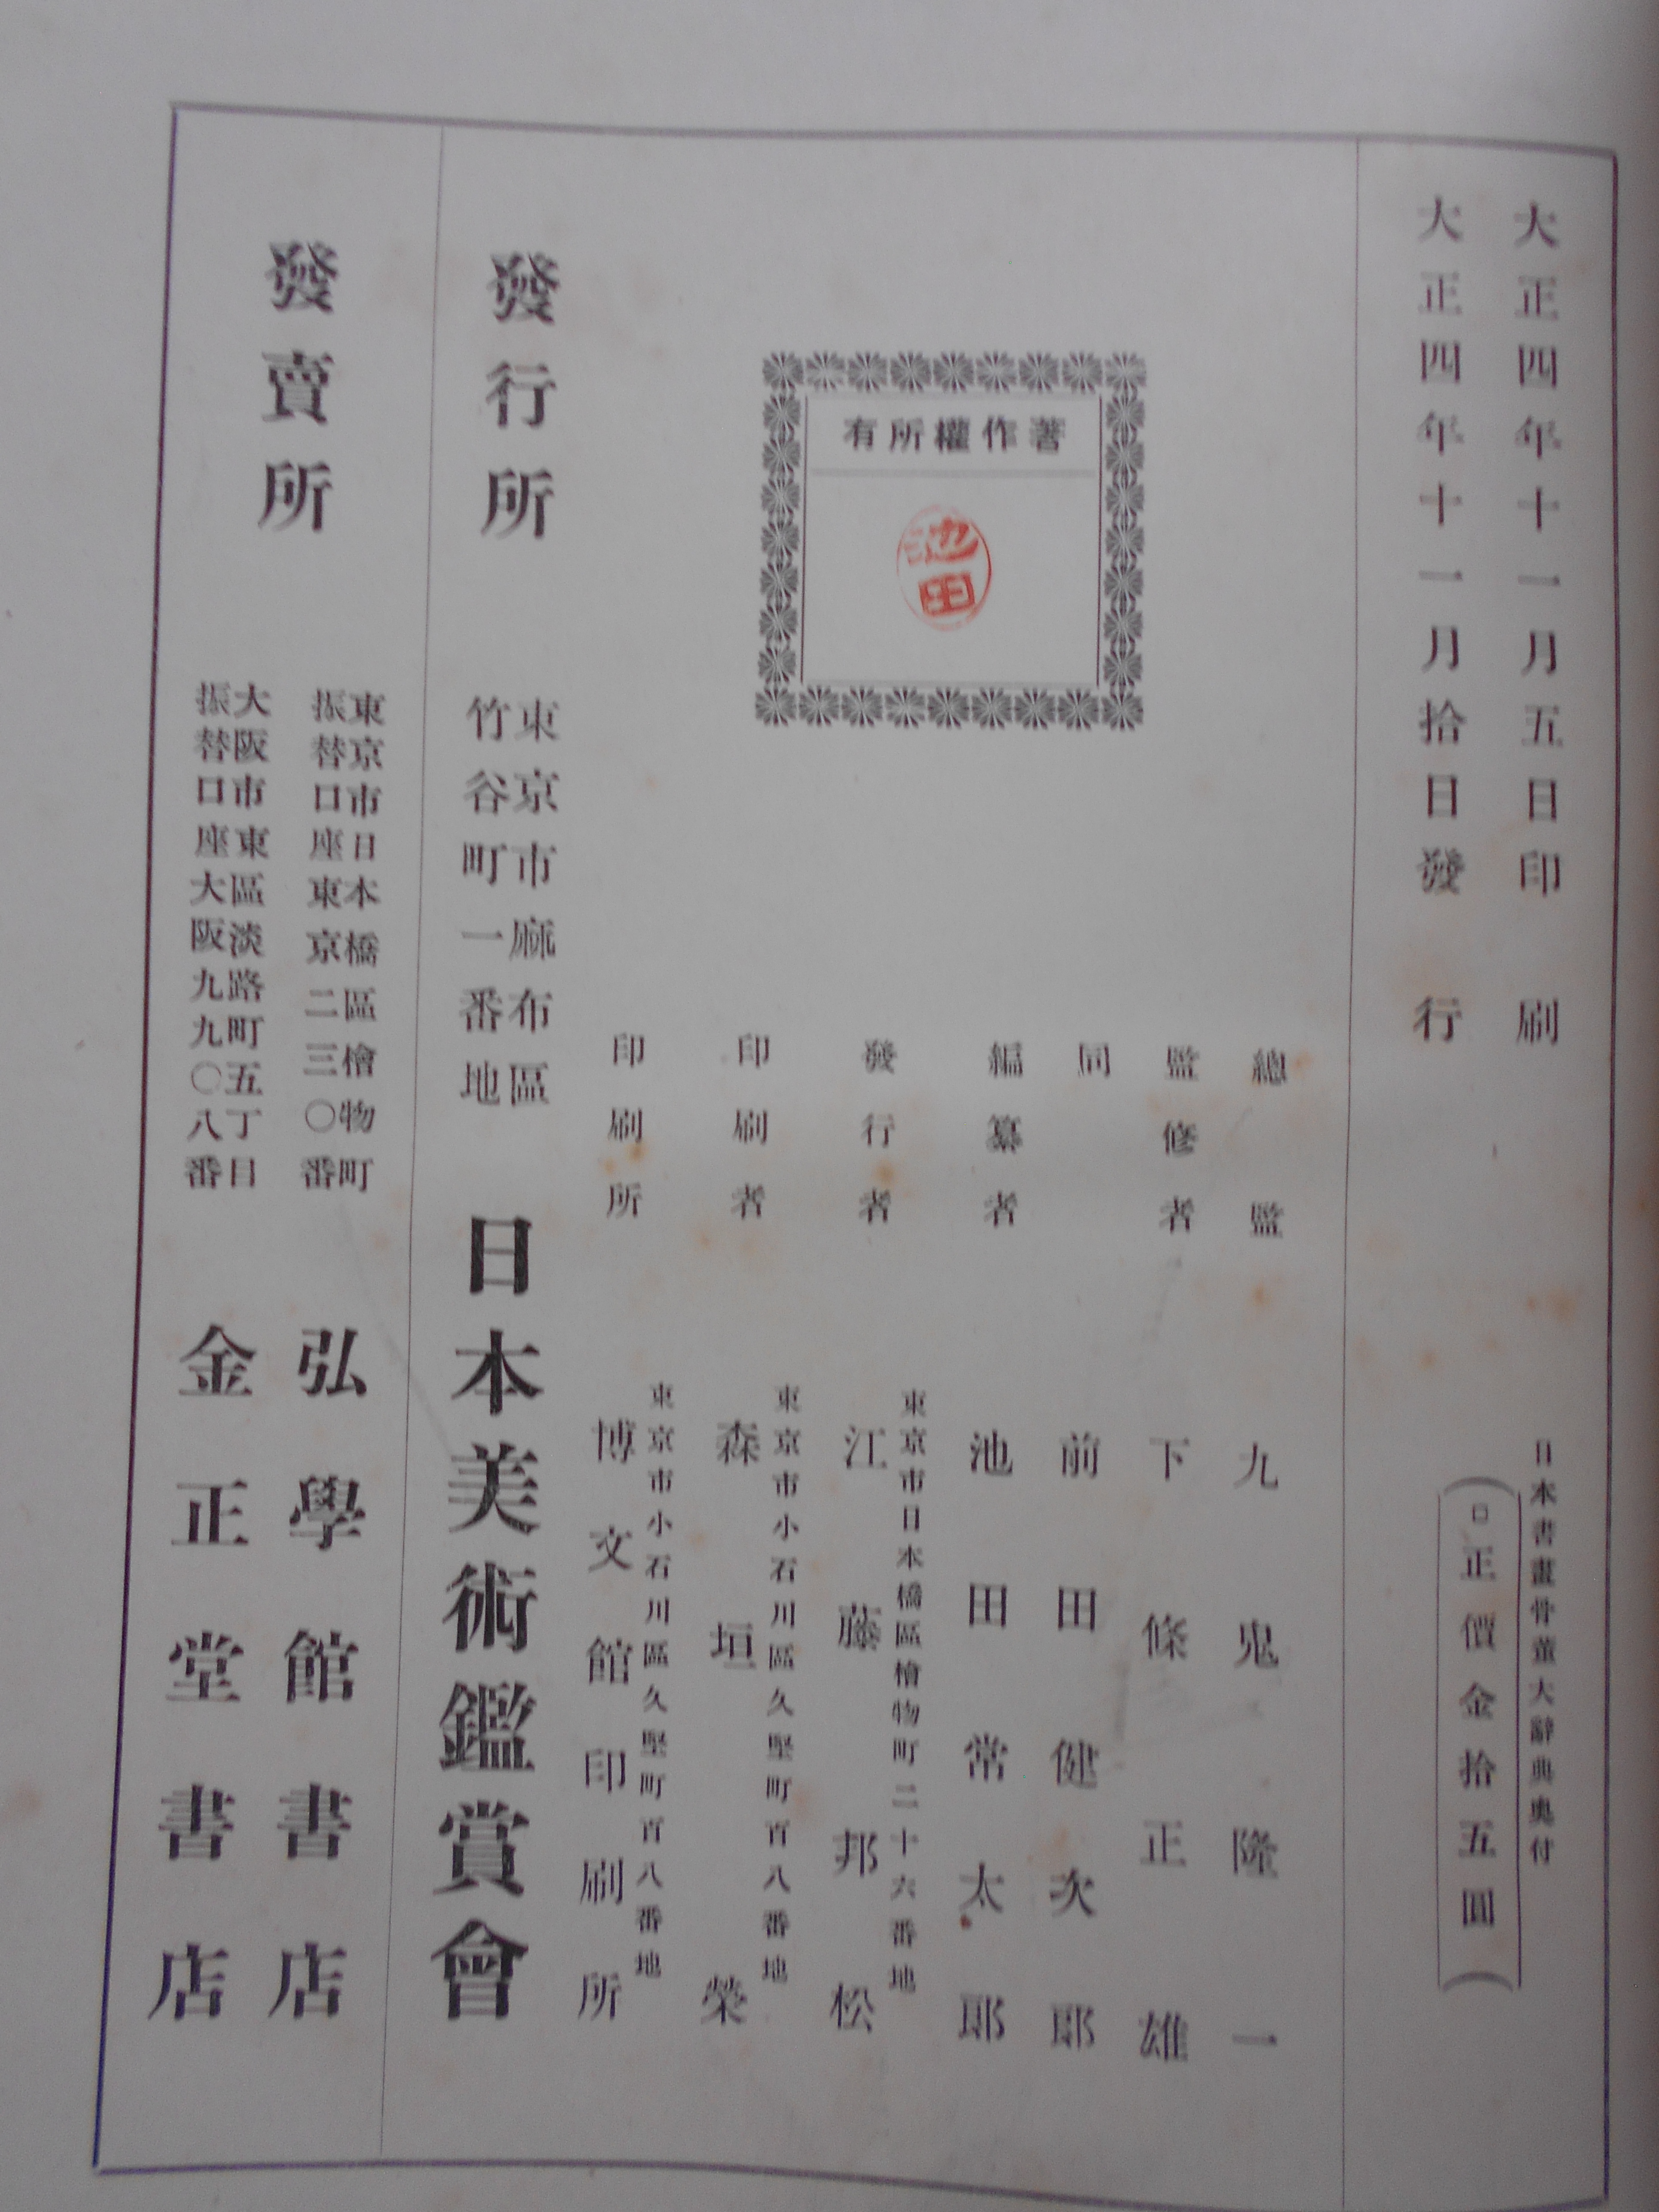 大正四年十一月五日印刷
大正四年十一月拾日發行
日本書畫骨董大辭典奥付
正價金拾五圓
著作權所有
池田
總監 九鬼隆一
監修者 下條正雄
同 前田健次郎
編纂者 池田常太郎
發行者 東京市日本橋區檜物町二十六番地
江藤邦松
印刷者 東京市小石川區久堅町百八番地
森垣榮
印刷所 東京市小石川區久堅町百八番地
博文館印刷所
發行所 東京市麻布區
竹谷町一番地
日本美術鑑賞會
發賣所
東京市日本橋區檜物町
振替口座東京二三〇番
弘學館書店
大阪市東區淡路町五丁目
振替口座大阪九九〇八番
金正堂書店